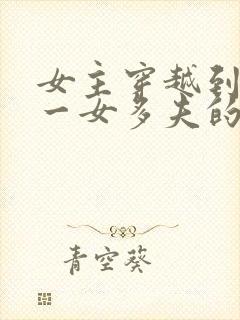 女主穿越到
一女多夫的
青空葵